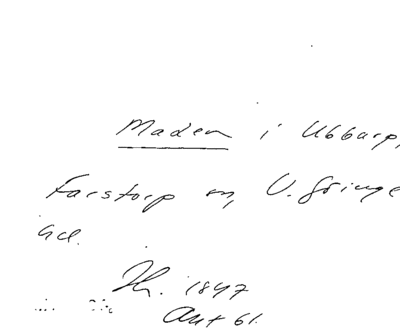 Maden i Ubbarp,
Farstorp sn, V. Göinge
hd.
Th. 1847
Ant 61.